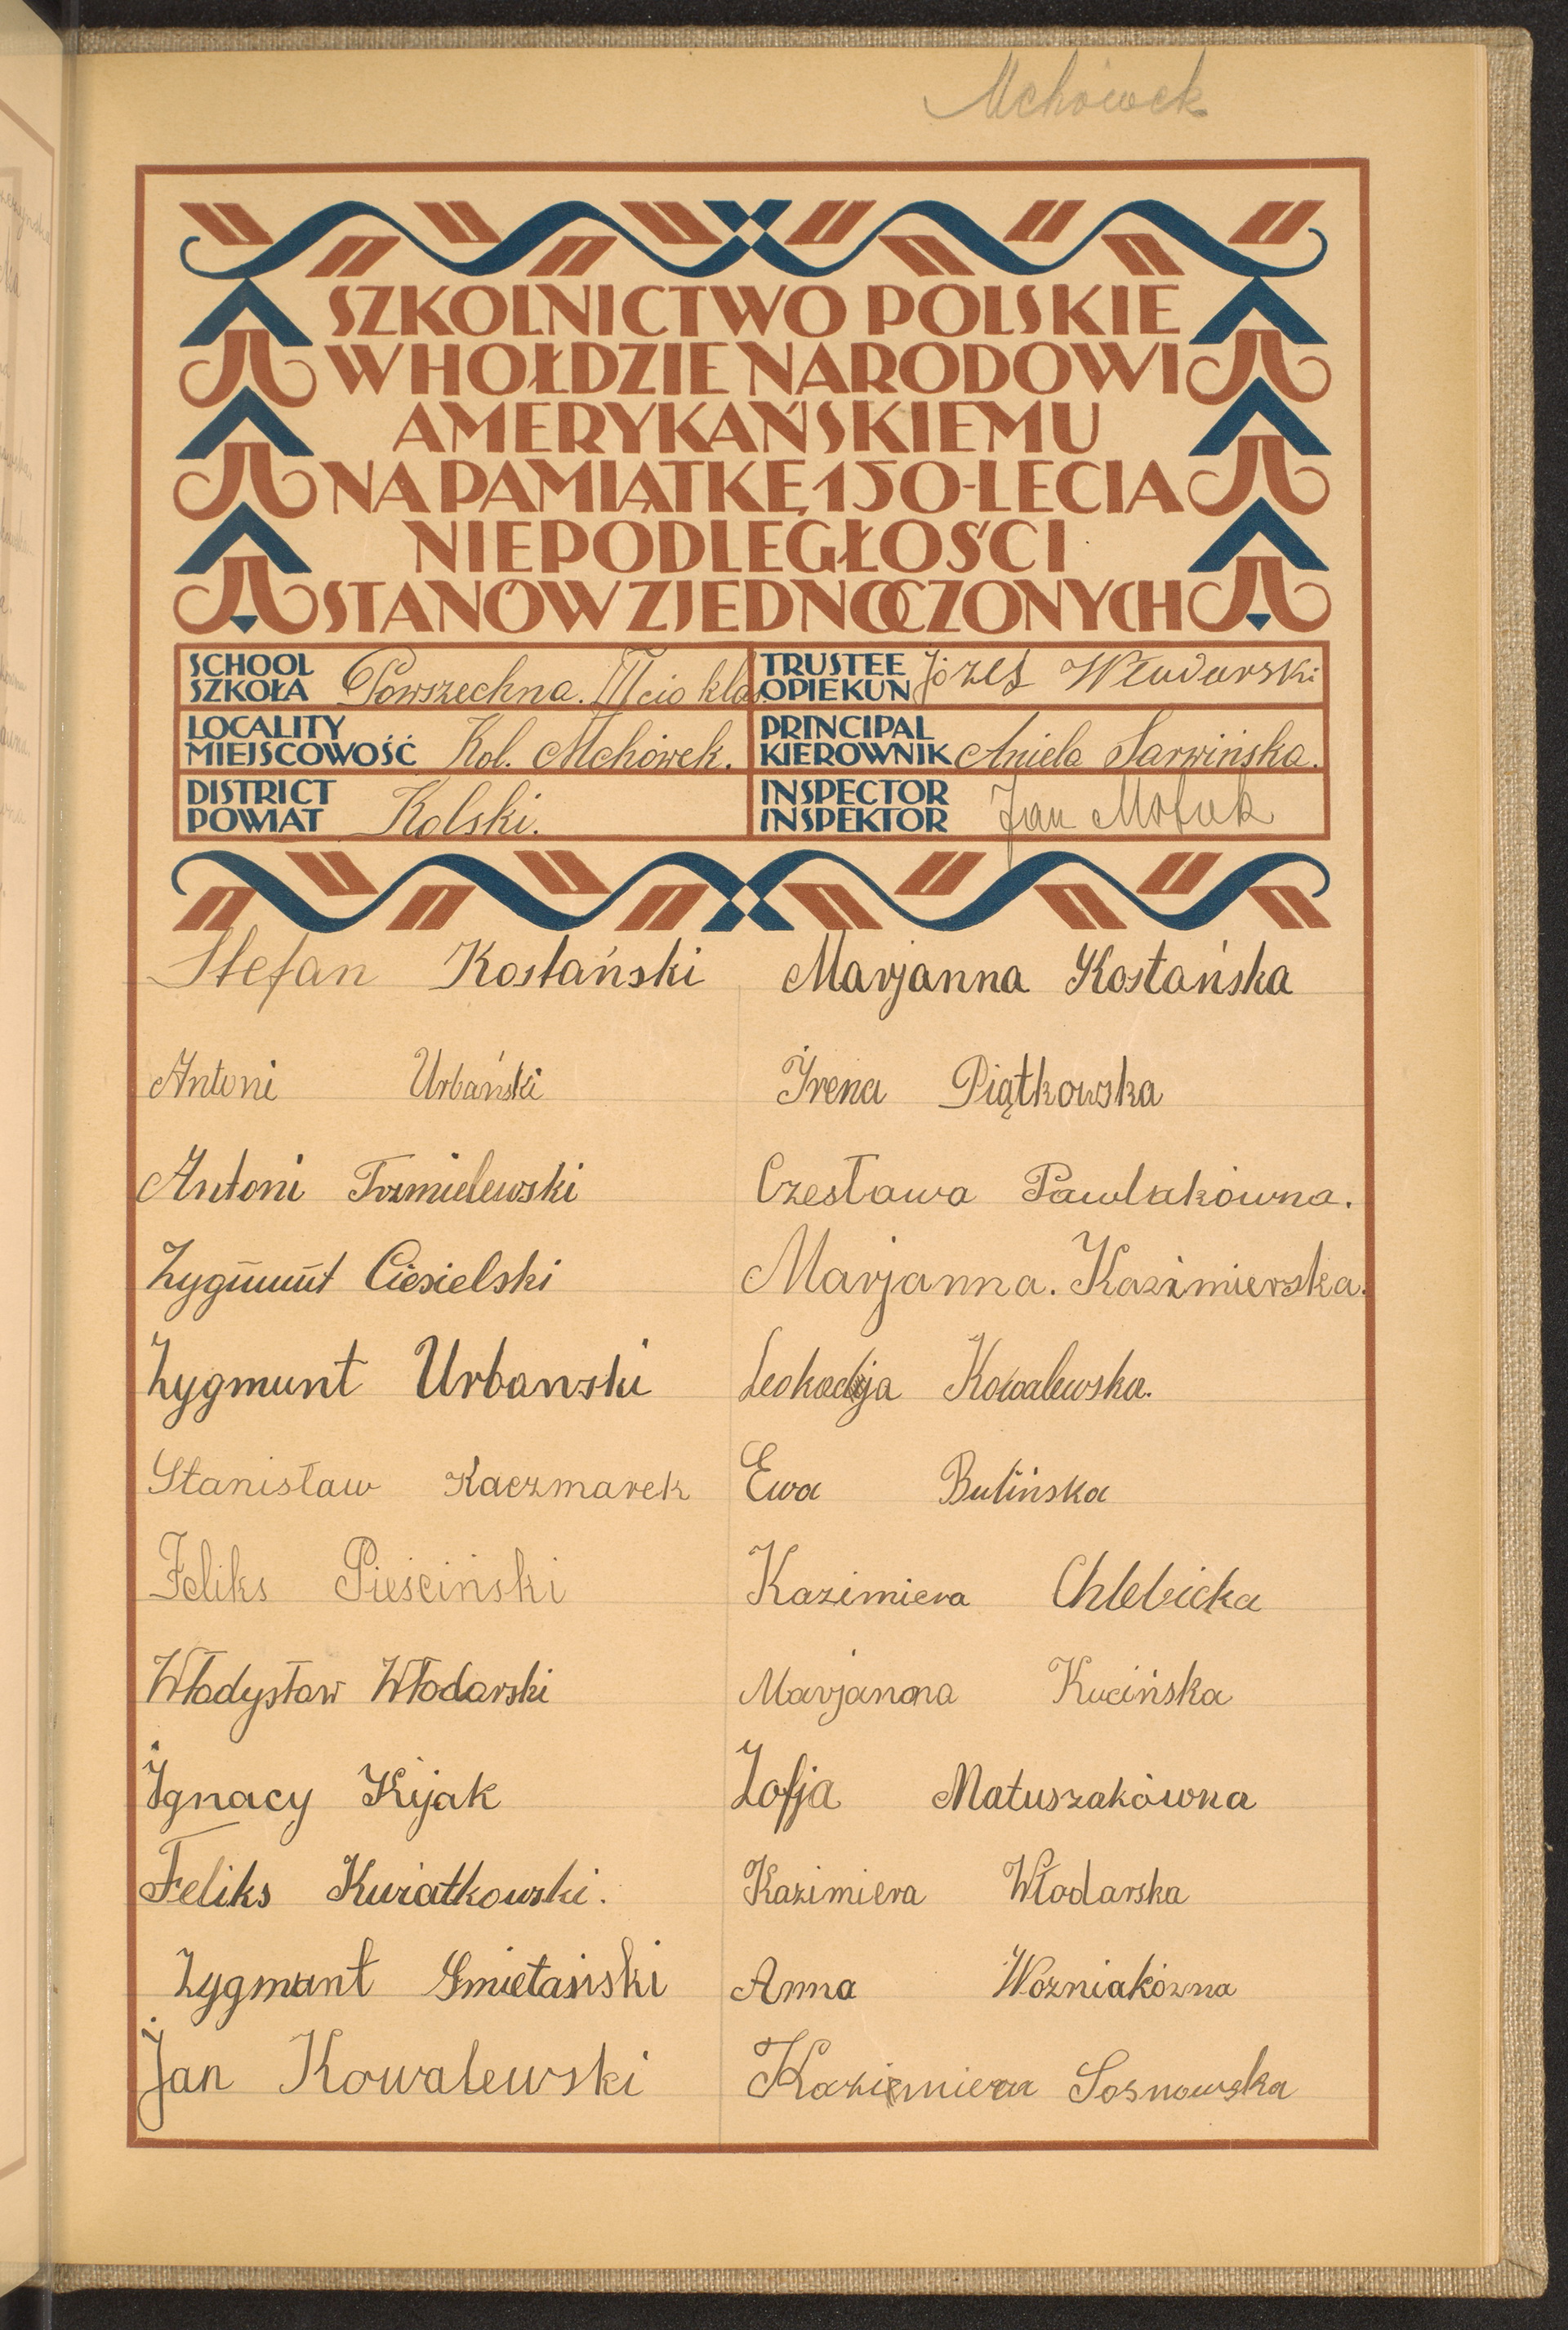 Mchówek
SZKOLNICTWO POLSKIE
W HOŁDZIE NARODOWI
AMERYKAŃSKIEMU
NA PAMIĄTKĘ 150-LECIA
NIEPODLEGŁOŚCI
STANÓW ZJEDNOCZONYCH
SCHOOL
SZKOŁA Powszechna. III cio klas.
TRUSTEE
OPIEKUN Józef Włudarski
LOCALITY
MIEJSCOWOŚĆ Kol. Mchówek.
PRINCIPAL
KIEROWNIK Aniela Sarwińska.
DISTRICT
POWIAT Kolski.
INSPECTOR
INSPEKTOR Jan
Stefan Kostański Marjanna Kostańska
Antoni Urbański Irena Piątkowska
Antoni Czesława Pawlakówna.
Zygmunt Ciesielski Marjanna. Kazimierska.
Zygmunt Urbanski Leokadja Kowalewska.
Stanisław Kaczmarek Ewa Bulińska
Feliks Pieściński Kazimiera Chlebicka
Władysław Włodarski Marjanna Kucińska
Ignacy Kijak Zofja Matuszakówna
Feliks Kwiatkowski. Kazimiera Włodarska
Zygmunt Smietański Anna Wozniakózna
Jan Kowalewski Kazimiera Sosnowska